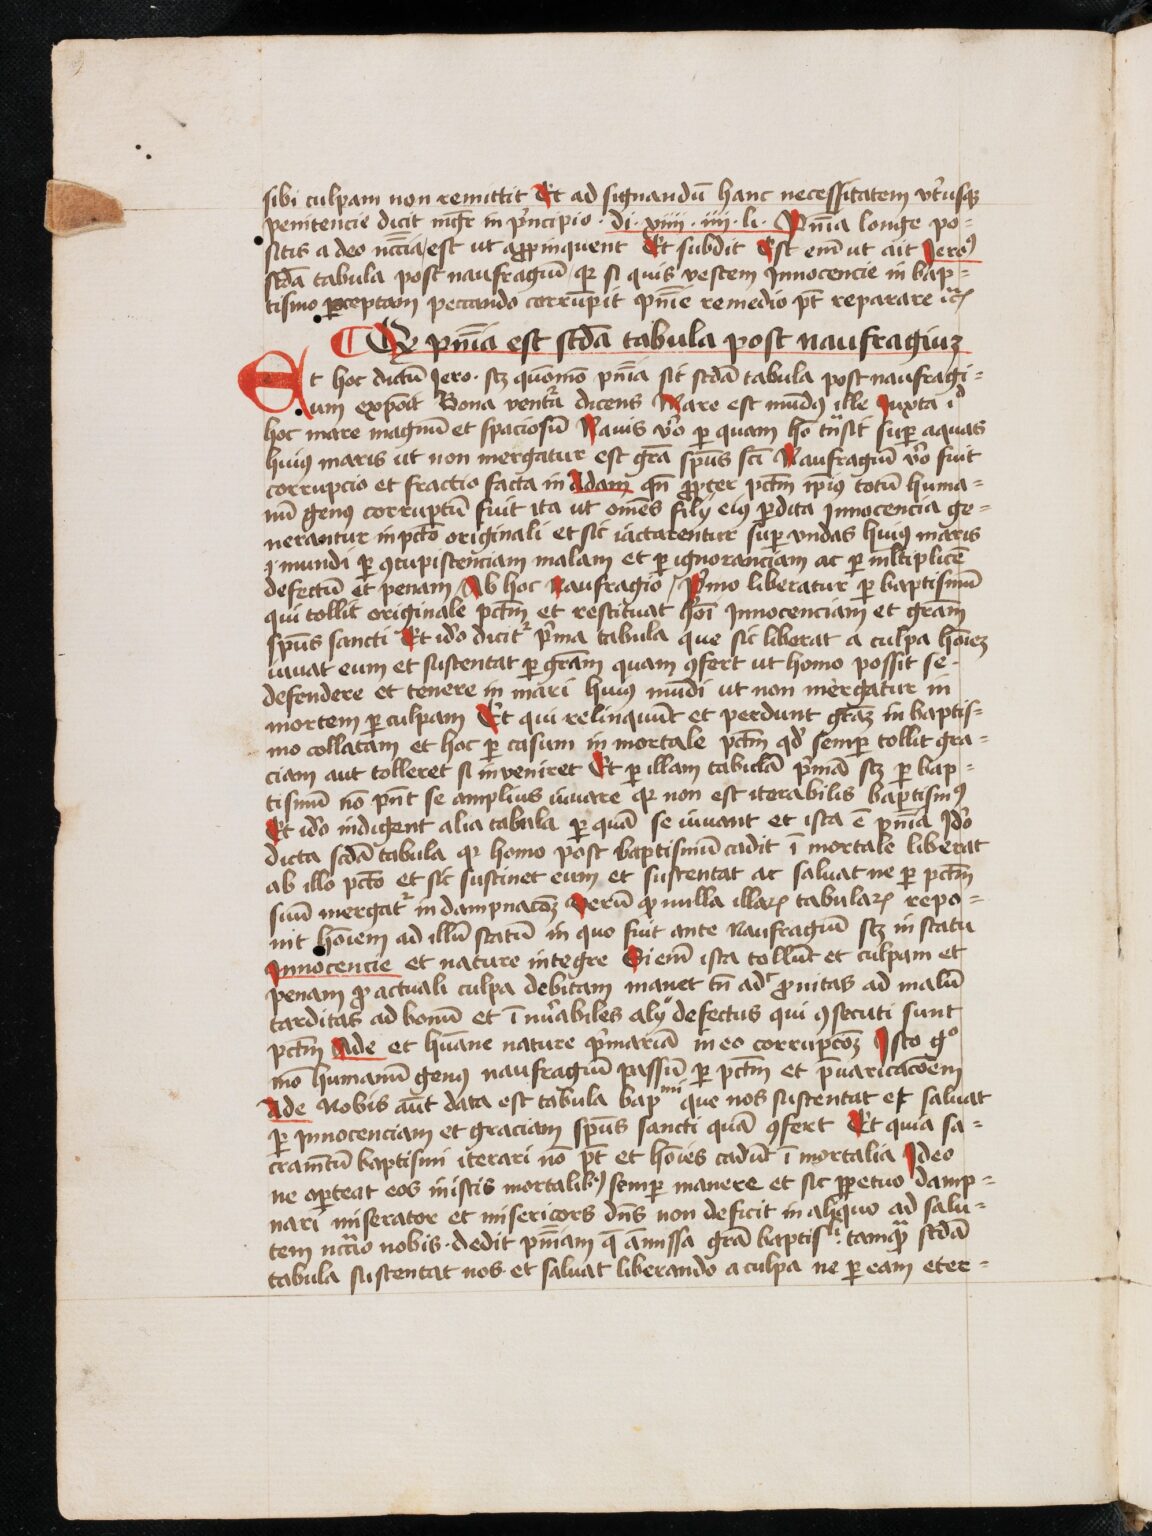 sibi culpam non remittit Et ad signandū hanc necessitatem vt'usq
penitencie dicit mgr in p'ncipio · di · xiiii · iiii · li · Pnīa longe po-
sitis a deo nccīa est ut appinquent Et subdit Est eni ut ait Jero9
scdā tabula post naufragiū qr si quis vestem Innocencie in bap=
tismo perceptam peccando corrupit pnīe remedio pt reparare
Qp pnīa est scdā tabula post naufragiuz
Et hoc dictū Jero · scz quōmō pnīa sit scdā tabula post naufragi=
um expoīt Bona ventra dicens Mare est mūd9 iste Juxta id
hoc mare magnū et spaciosū Nauis vō per quam hō tnsit super aquas
hui9 maris ut non mergatur est gra spūs scī Naufragiū vō fuit
corrupcio et fractio facta in Adam qn propter pctm ipi9 totū huma=
nū gen9 corruptū fuit ita ut omēs filij ei9 perdita Innocencia ge=
nerantur in pcto originali et sic iactarentur super vndas hui9 maris
mundi per 9cupiscenciam malam et per ignoranciam ac per mltiplicē
defectū et penam Ab hoc Naufragio / P'mo liberatur per baptismū
qui tollit originale pctm et restituat hōi Innocenciam et grām
spūs sancti Et idō dicit' p'ma tabula que sic liberat a culpa hōiez
iuuat eum et sustentat per grām quam 9fert ut homo possit se
defendere et tenere in mari hui9 mūdi ut non mergatur in
mortem per culpam Et qui relinquūt et perdunt graz in baptis=
mo collatam et hoc per casum in mortale pctm qd semper tollit gra=
ciam aut tolleret si inveniret Et per illam tabulā p'mā scz per bap=
tismū nō pnt se amplius iuuare qr non est iterabilis baptism9
Et idō indigent alia tabula per quā se iuuant et ista ē pnīa Idō
dicta scdā tabula qr homo post baptismū cadit ī mortale liberat
ab illo pcto et sic sustinet eum et sustentat ac saluat ne per pctm
suū mergat' in dampnacōz Verū qp nulla illar tabular repo=
nit hōiem ad illū statū in quo fuit ante naufragiū scz in statu
Innocencie et nature integre Si eni ista tollūt et culpam et
penam pro actuali culpa debitam manet tn adr pronitas ad malū
tarditas ad bonū et ī nu'abiles alij defectus qui 9secuti sunt
pctm Ade et hūane nature p'mariā in eo corrupcoz Isto go
mō humanū gen9 naufragiū passū per pctm et p'uaricacoem
Ade Nobis aūt data est tabula bapmi que nos sustentat et saluat
per Innocenciam et graciam spūs sancti quā 9fert Et quia sa=
cramtū baptismi iterari nō pt et hōies cadūt ī mortalia Ideo
ne oporteat eos in istis mortalib9 semper manere et sic perpetuo damp=
nari miserator et misericors dns non deficit in aliquo ad salu=
tem nccīario nobis · dedit pnīam q amissa grā baptisli tamq scdā
tabula sustentat nos et saluat liberando a culpa ne per eam eter=